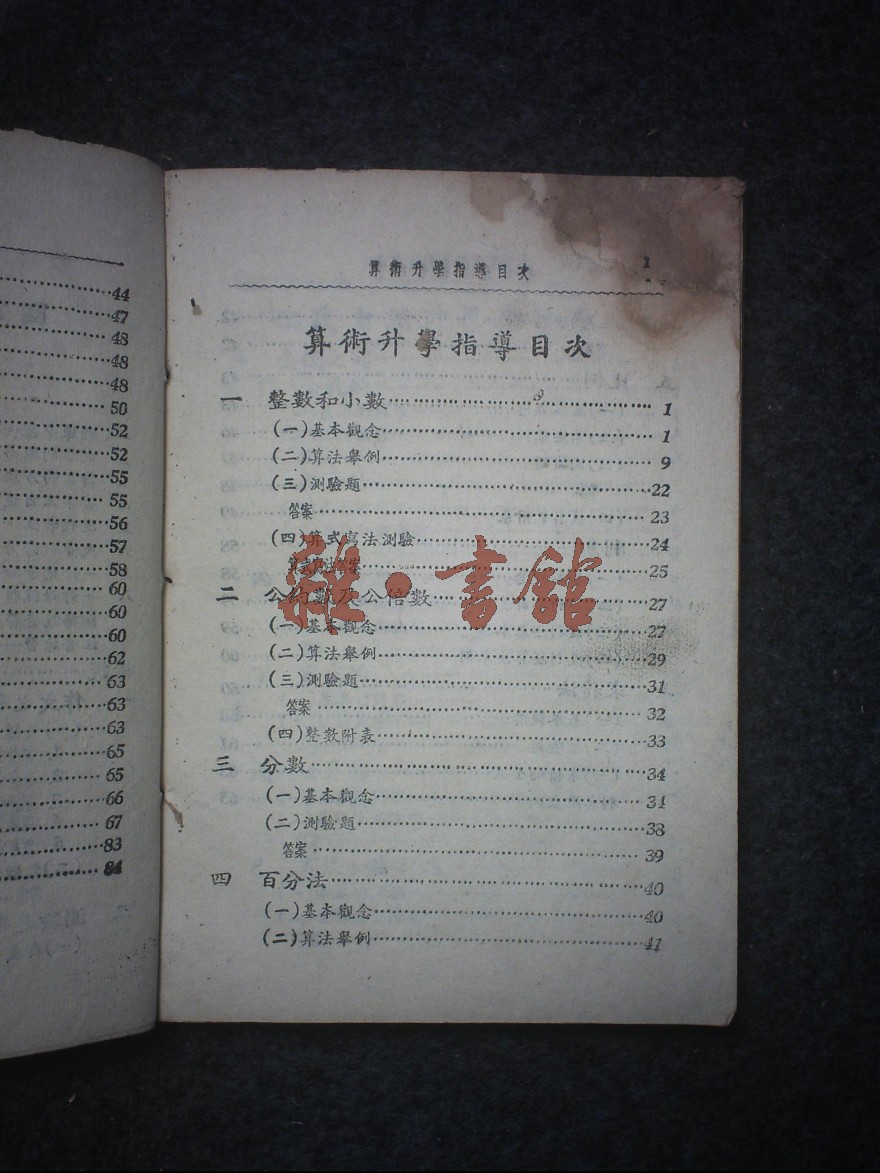 44
47
48
48
48
50
52
52
55
55
56
57
58
60
60
60
62
63
63
63
65
65
66
67
83
84
算術升學指導目次 1
算術升學指導目次
一 整數和小數 1
(一)基本觀念 1
(二)算法舉例 9
(三)測驗題 22
答案 23
(四)算式寫法測驗 24
算式寫法答案 25
二 公約數及公倍數 27
(一)基本觀念 27
(二)算法舉例 29
(三)測驗題 31
答案 32
(四)整數附表 33
三 分數 34
(一)基本觀念 34
(二)測驗題 38
答案 39
四 百分法 40
(一)基本觀念 40
(二)算法舉例 41
雜·書館